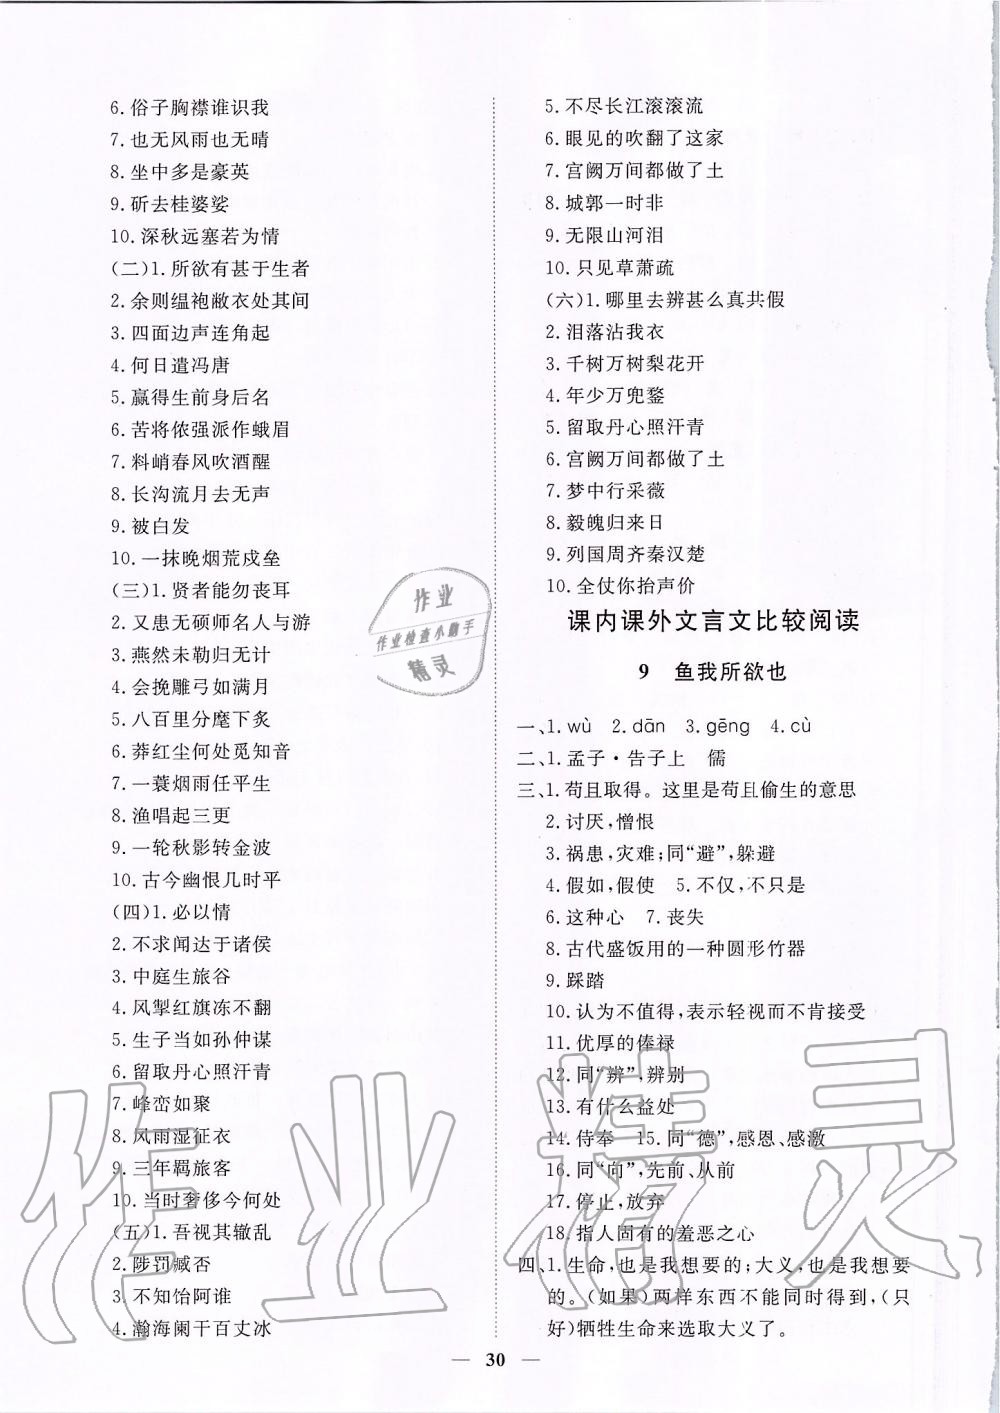 6. 俗子胸襟谁识我
7. 也无风雨也无晴
8. 坐中多是豪英
9. 斫去桂婆娑
10. 深秋远塞若为情
(二)1. 所欲有甚于生者
2. 余则缊袍敝衣处其间
3. 四面边声连角起
4. 何日遣冯唐
5. 赢得生前身后名
6. 苦将侬强派作蛾眉
7. 料峭春风吹酒醒
8. 长沟流月去无声
9. 被白发
10. 一抹晚烟荒戍垒
(三)1. 贤者能勿丧耳
2. 又患无硕师名人与游
3. 燕然未勒归无计
4. 会挽雕弓如满月
5. 八百里分麾下炙
6. 莽红尘何处觅知音
7. 一蓑烟雨任平生
8. 渔唱起三更
9. 一轮秋影转金波
10. 古今幽恨几时平
(四)1. 必以情
2. 不求闻达于诸侯
3. 中庭生旅谷
4. 风掣红旗冻不翻
5. 生子当如孙仲谋
6. 留取丹心照汗青
7. 峰峦如聚
8. 风雨湿征衣
9. 三年羁旅客
10. 当时奢侈今何处
(五)1. 吾视其辙乱
2. 陟罚臧否
3. 不知饴阿谁
4. 瀚海阑干百丈冰
5. 不尽长江滚滚流
6. 眼见的吹翻了这家
7. 宫阙万间都做了土
8. 城郭一时非
9. 无限山河泪
10. 只见草萧疏
(六)1. 哪里去辨甚么真共假
2. 泪落沾我衣
3. 千树万树梨花开
4. 年少万兜鍪
5. 留取丹心照汗青
6. 宫阙万间都做了土
7. 梦中行采薇
8. 毅魄归来日
9. 列国周齐秦汉楚
10. 全仗你抬声价
课内课外文言文比较阅读
9 鱼我所欲也
一、1. wù 2. dān 3. gēng 4. cù
二、1. 孟子·告子上 儒
三、1. 苟且取得。这里是苟且偷生的意思
2. 讨厌,憎恨
3. 祸患,灾难;同“避”,躲避
4. 假如,假使 5. 不仅,不只是
6. 这种心 7. 丧失
8. 古代盛饭用的一种圆形竹器
9. 踩踏
10. 认为不值得,表示轻视而不肯接受
11. 优厚的俸禄
12. 同“辨”,辨别
13. 有什么益处
14. 侍奉 15. 同“德”,感恩、感激
16. 同“向”,先前、从前
17. 停止,放弃
18. 指人固有的羞恶之心
四、1. 生命,也是我想要的;大义,也是我想要
的。(如果)两样东西不能同时得到,(只
好)牺牲生命来选取大义了。
— 30 —
作业
作业检查小助手
精灵
作业精灵